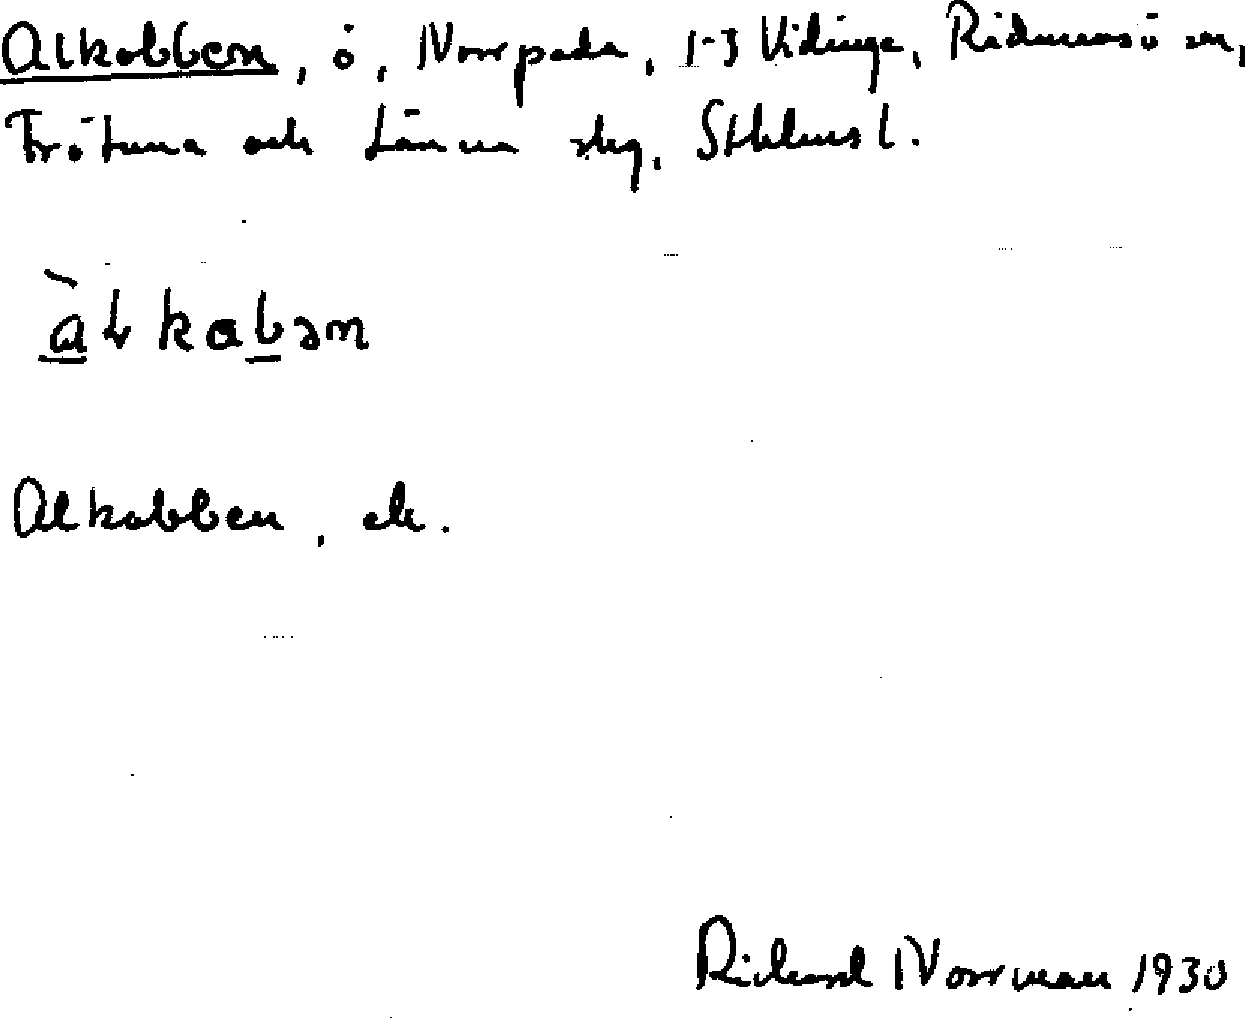 Alkobben, ö, Norrpada, 1-3 Vidinge, Rådmansö sn,
Frötuna och Länna skg, Sthlms l.
àlkabən
Alkobben, ek.
Richard Norrman 1930